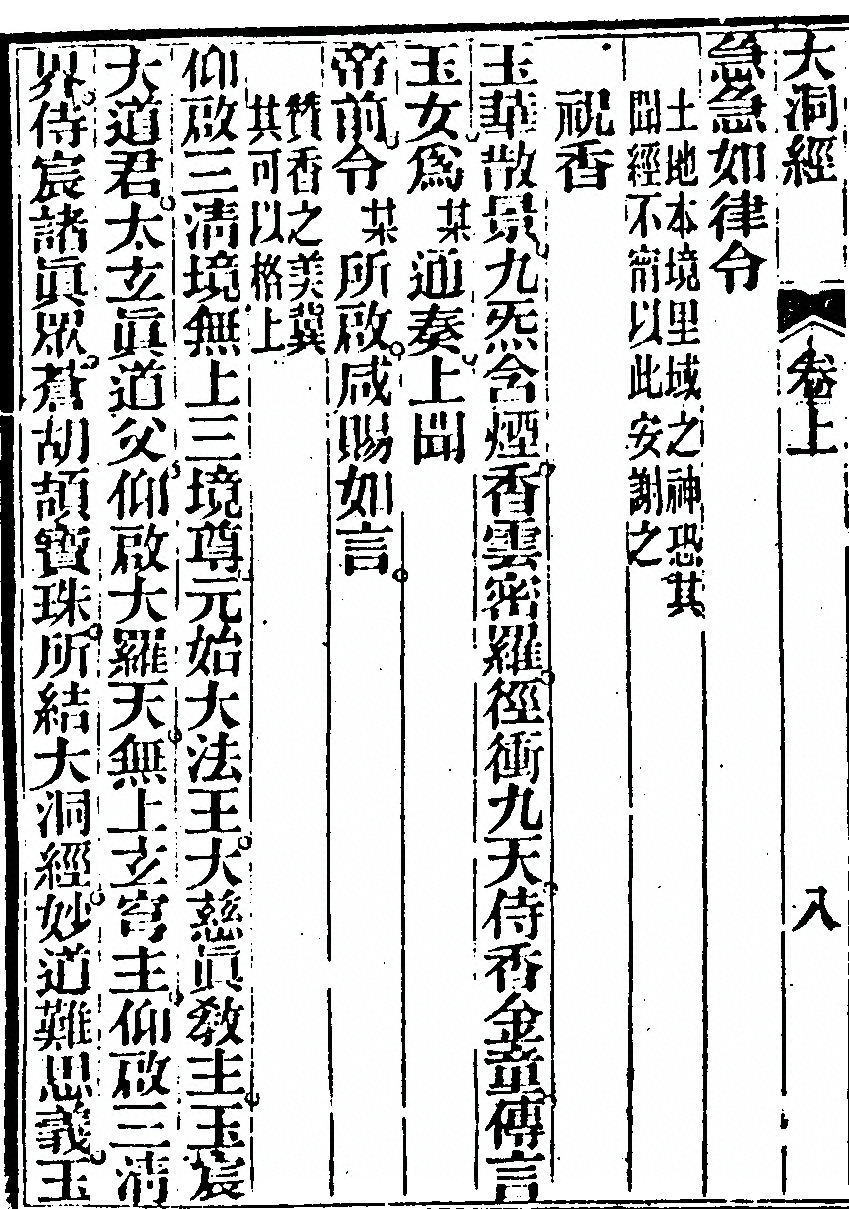 大洞經 卷上 八
急急如律令
土地本境里域之神恐其
聞經不甯以此安謝之
祝香
玉華散景九炁含煙香雲密羅徑衝九天侍香金童傳言
玉女爲某通奏上聞
帝前令某所啟咸賜如言
贊香之美冀
其可以格上
仰啟三清境無上三境尊元始大法王大慈眞教主玉宸
大道君太玄眞道父仰啟大羅天無上玄穹主仰啟三清
界侍宸諸眞眾蒼胡頡寶珠所結大洞經妙道難思議玉